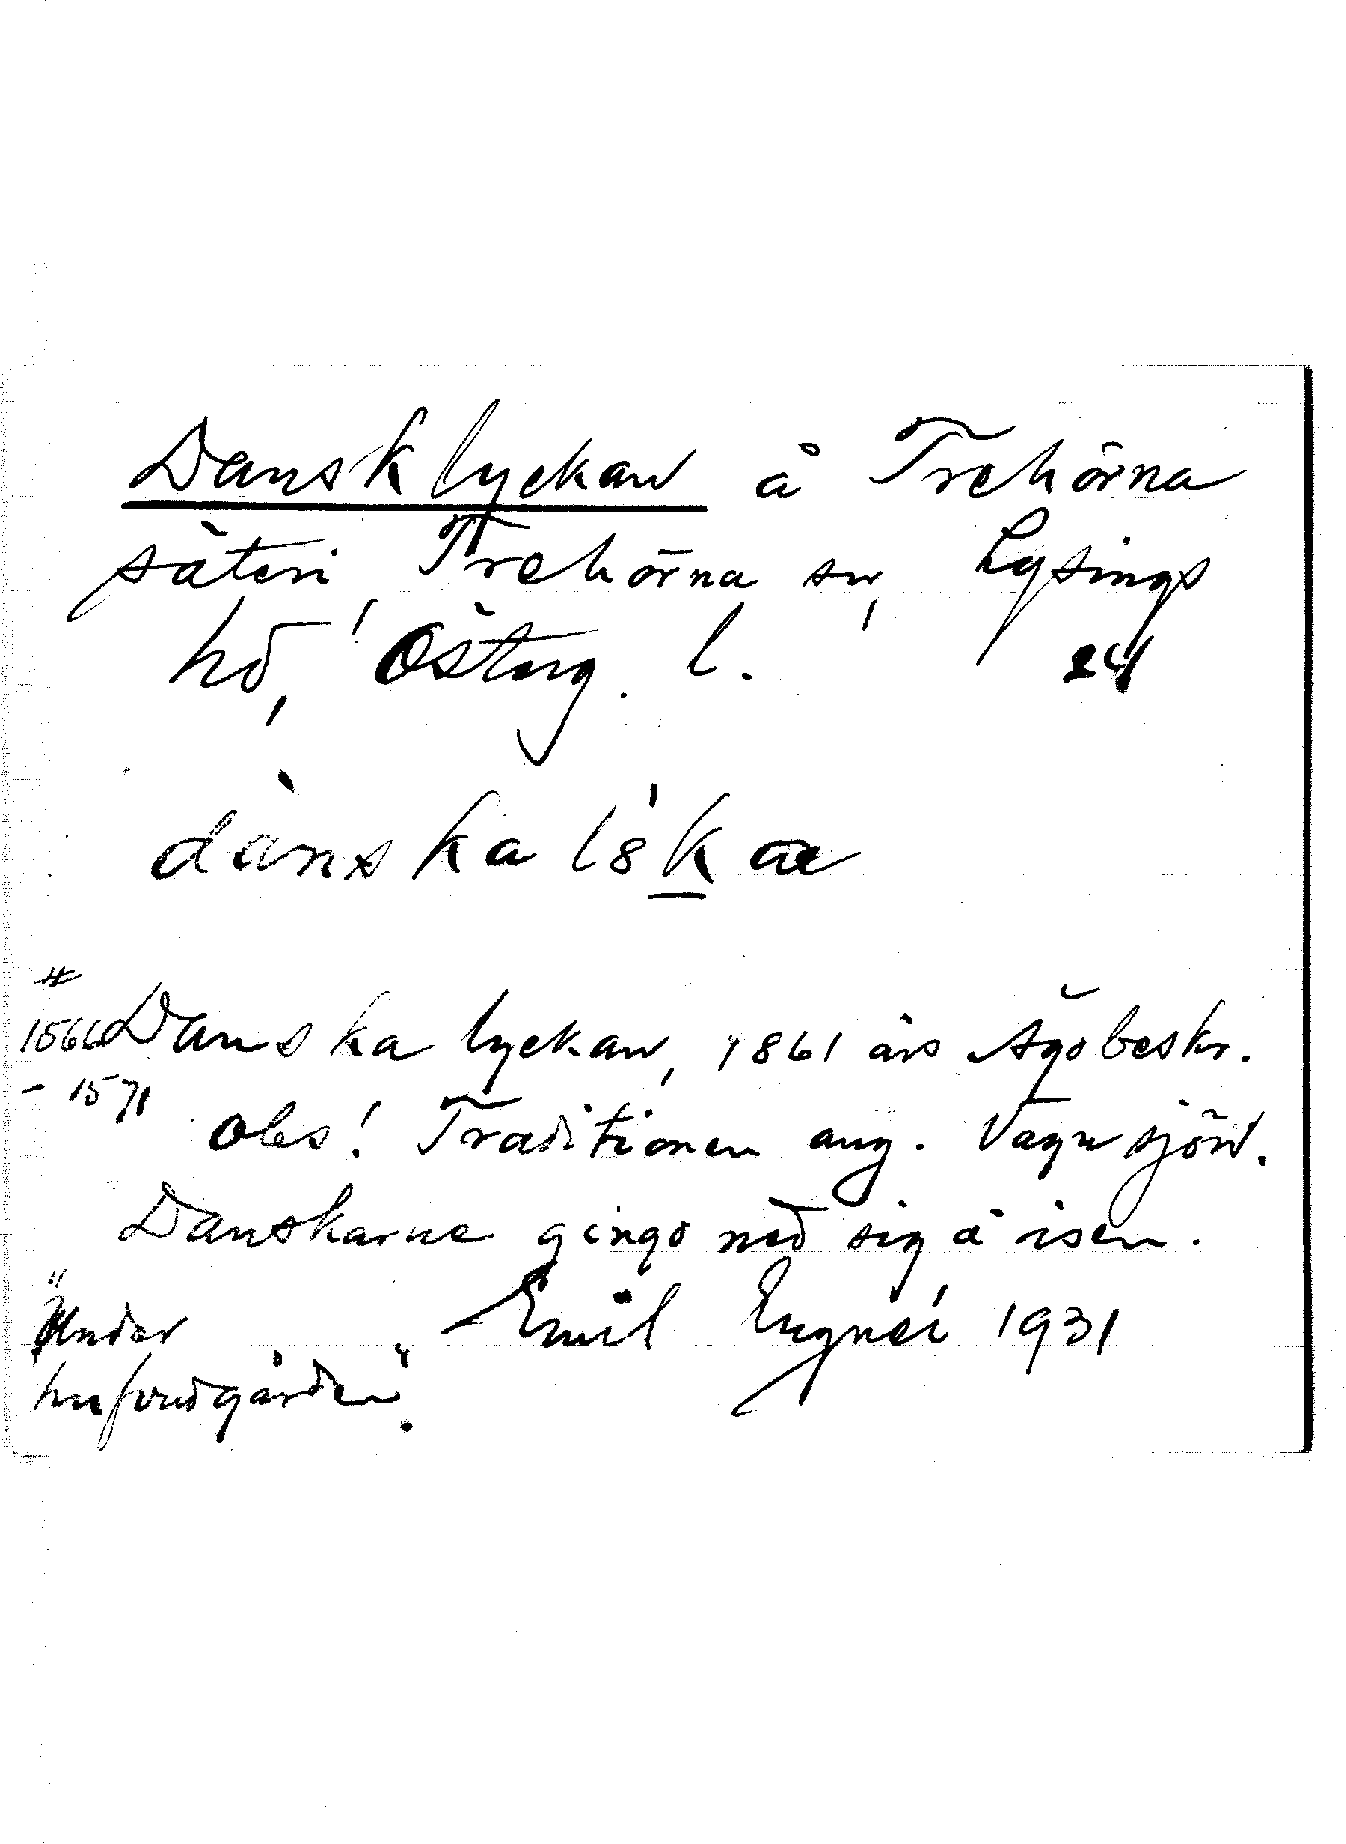 Dansklyckan å Trehörna
säteri, Trehörna sn, Lysings
hd, Österg. l. 24
dànska lykae
#
1566 Danska lyckan, 1861 års Ägobeskr.
- 1571
obs! Traditionen ang. Vagnsjön.
Danskarne gingo ned sig å isen.
"Under Emil 1931
hufvudgården".